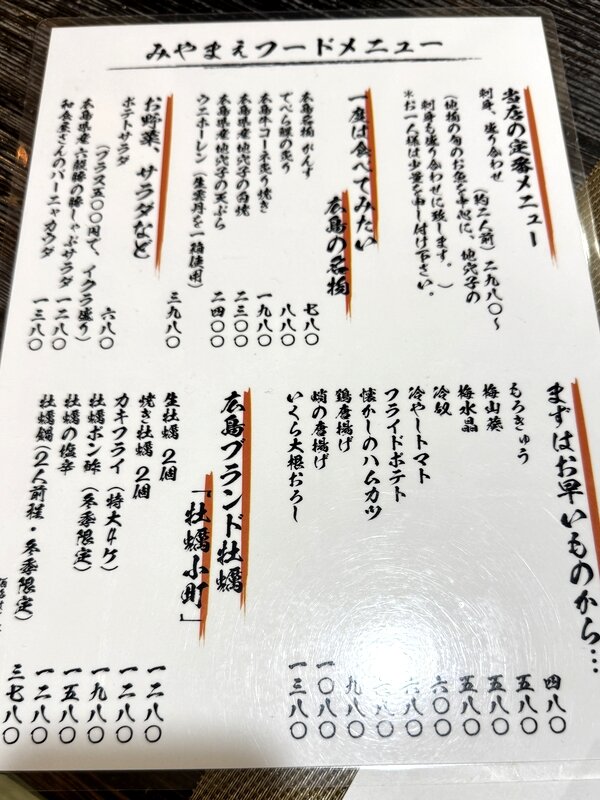 みやまえフードメニュー
当店の定番メニュー
刺身、盛り合わせ (約二人前) 二九八〇〜
(地物の旬のお魚を中心に、地穴子の
刺身も盛り合わせに致します。)
*お一人様は少量を申し付け下さい。
一度は食べてみたい
広島の名物
広島名物 がんす 七八〇
でべら鰈の炙り 八八〇
広島牛コーネ炙り焼き 一九八〇
広島県産 地穴子の白焼 二三〇〇
広島県産 地穴子の天ぷら 二四〇〇
ウニホーレン(生雲丹を一箱使用) 三九八〇
お野菜、サラダなど
ポテトサラダ 六八〇
(プラス五〇〇円で、イクラ盛り)
広島県産六穀豚の豚しゃぶサラダ 一二八〇
和食屋さんのバーニャカウダ 一三八〇
まずはお早いものから…
もろきゅう 四八〇
梅山葵 五八〇
梅水晶 五八〇
冷奴 五八〇
冷やしトマト 六〇〇
フライドポテト 六八〇
懐かしのハムカツ
鶏唐揚げ 九八〇
蛸の唐揚げ 一〇八〇
いくら大根おろし 一三八〇
広島ブランド牡蠣
「牡蠣小町」
生牡蠣 2個 一二八〇
焼き牡蠣 2個 一二八〇
カキフライ(特大4ケ) 一九八〇
牡蠣ポン酢(冬季限定) 一五八〇
牡蠣の塩辛 一二八〇
牡蠣鍋(2人前程・冬季限定) 三七八〇